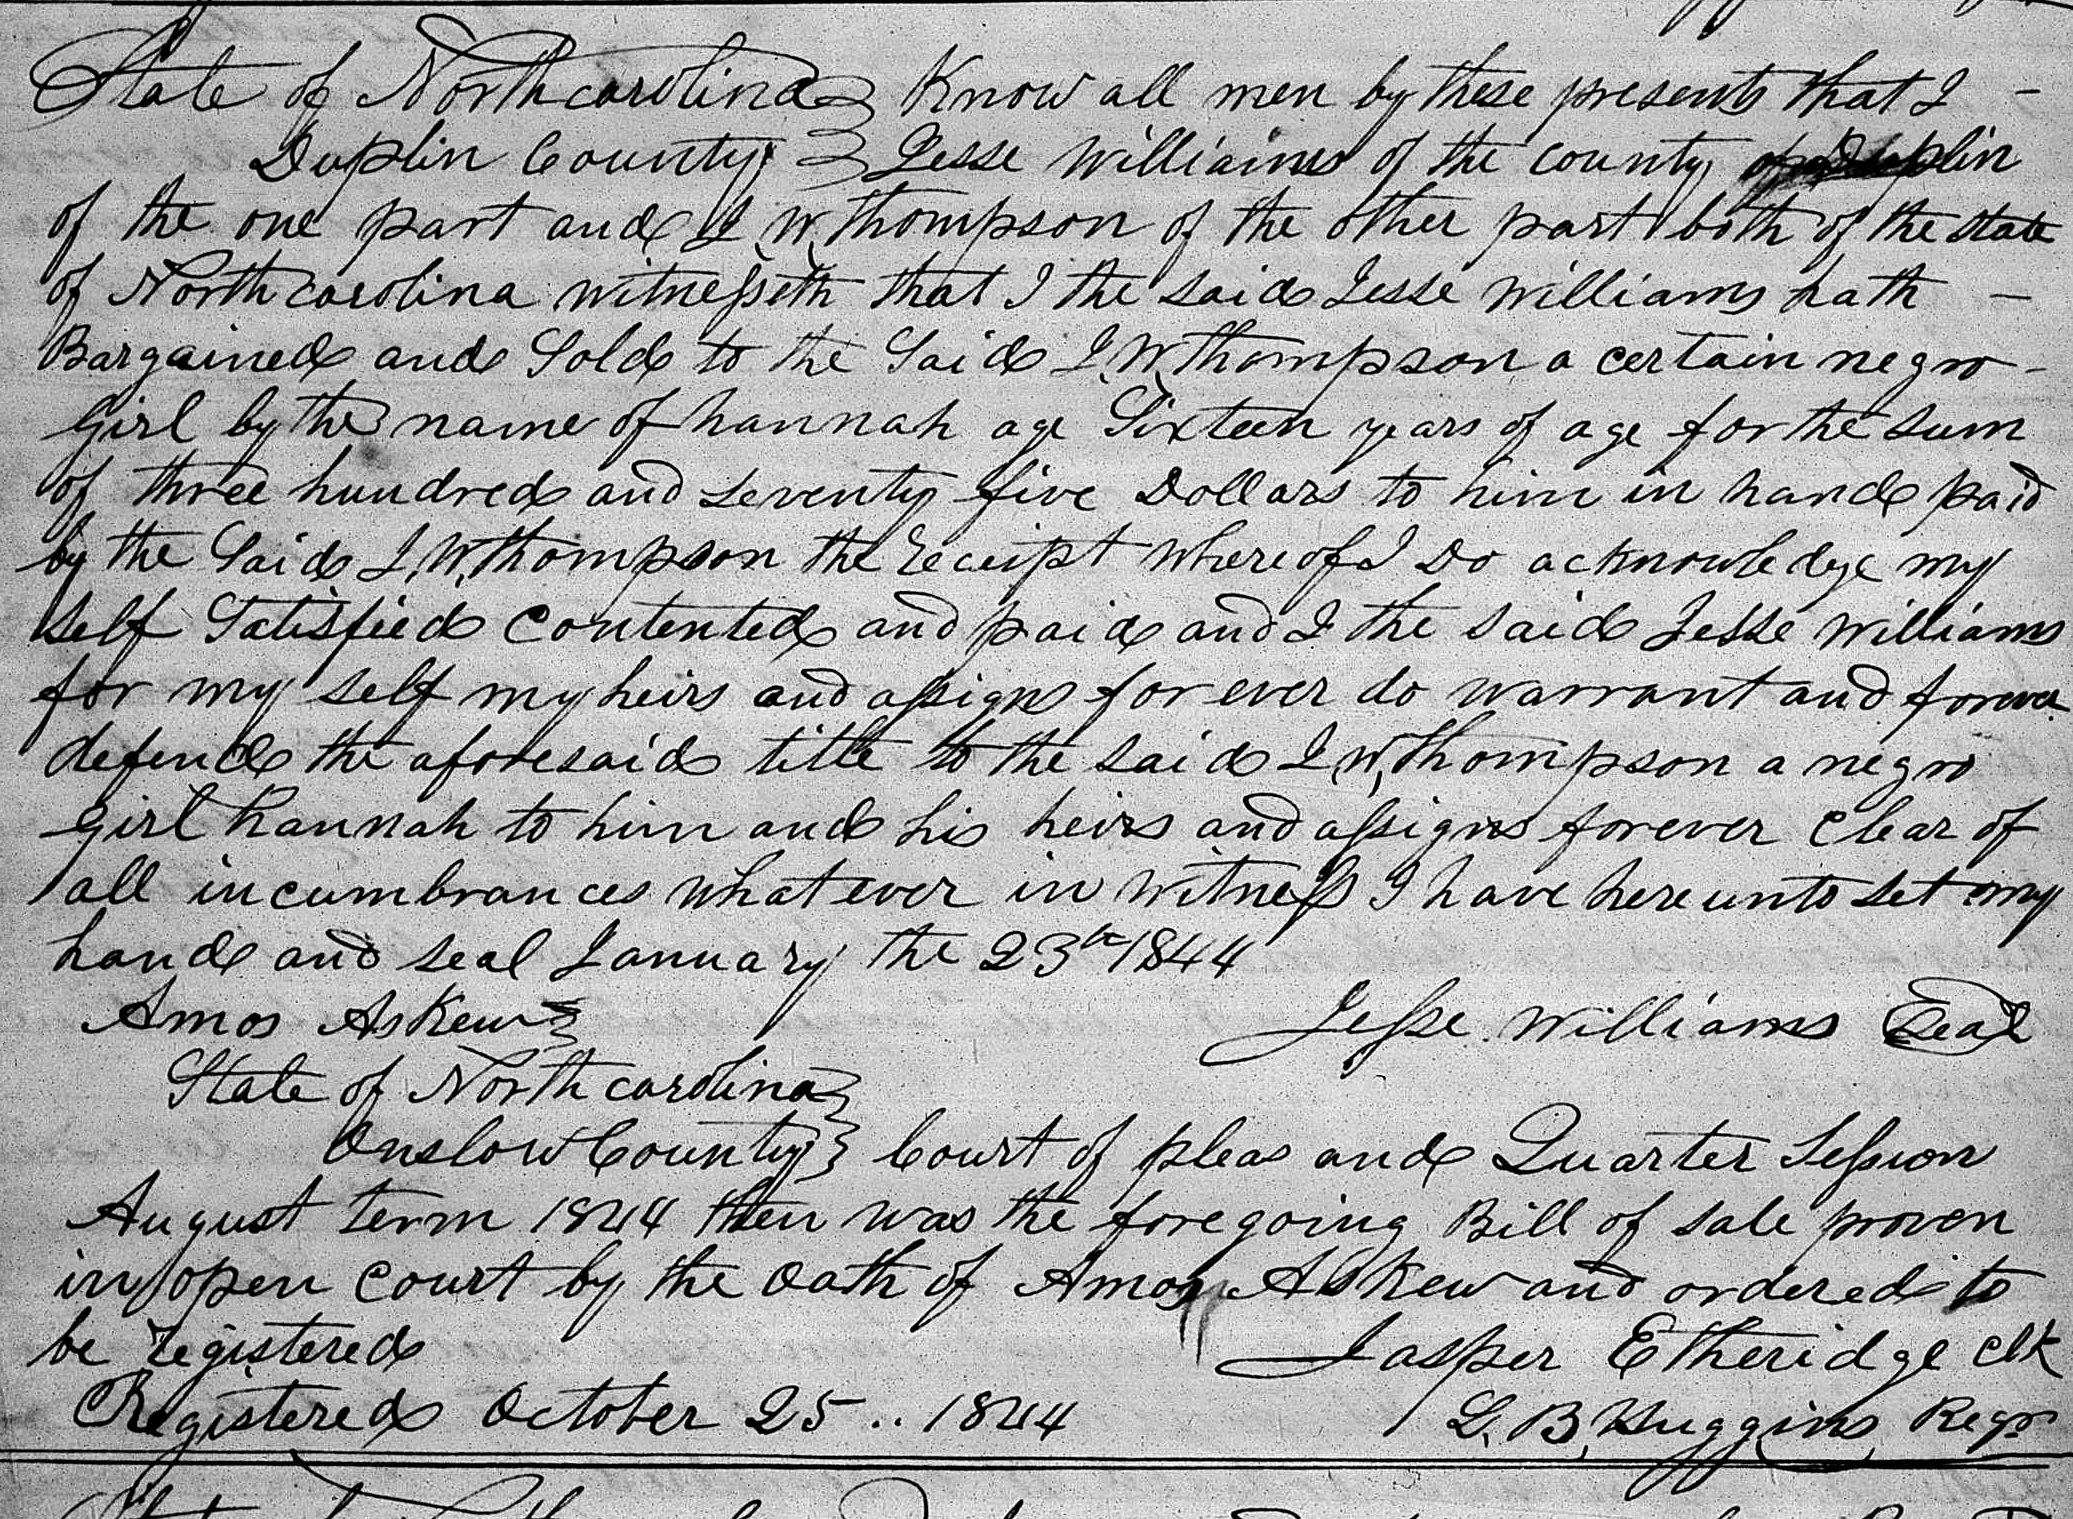 State of Northcarolina } Know all men by these presents that I -
Duplin County } Jesse Williams of the county of Duplin
of the one part and J. W. Thompson of the other part both of the state
of North carolina witnesseth that I the said Jesse Williams hath -
Bargained and Sold to the Said J. W. Thompson a certain negro -
Girl by the name of hannah age Sixteen years of age for the sum
of three hundred and seventy five Dollars to him in hand paid
by the Said J. W. Thompson the receipt whereof I Do acknowledge my
self Satisfied contented and paid and I the said Jesse Williams
for my self my heirs and assigns for ever do warrant and forever
defend the aforesaid title to the said J. W. Thompson a negro
girl hannah to him and his heirs and assigns forever clear of
all incumbrances what ever in witness I have here unto set my
hand and seal January the 23th 1844
Amos Askew } Jesse Williams Seal
State of North carolina }
Onslow County } Court of pleas and Quarter Session
August term 1844 then was the foregoing Bill of sale proven
in open court by the oath of Amos Askew and ordered to
be registered Jasper Etheridge clk
Registered October 25 .. 1844 L. B. Huggins Regr